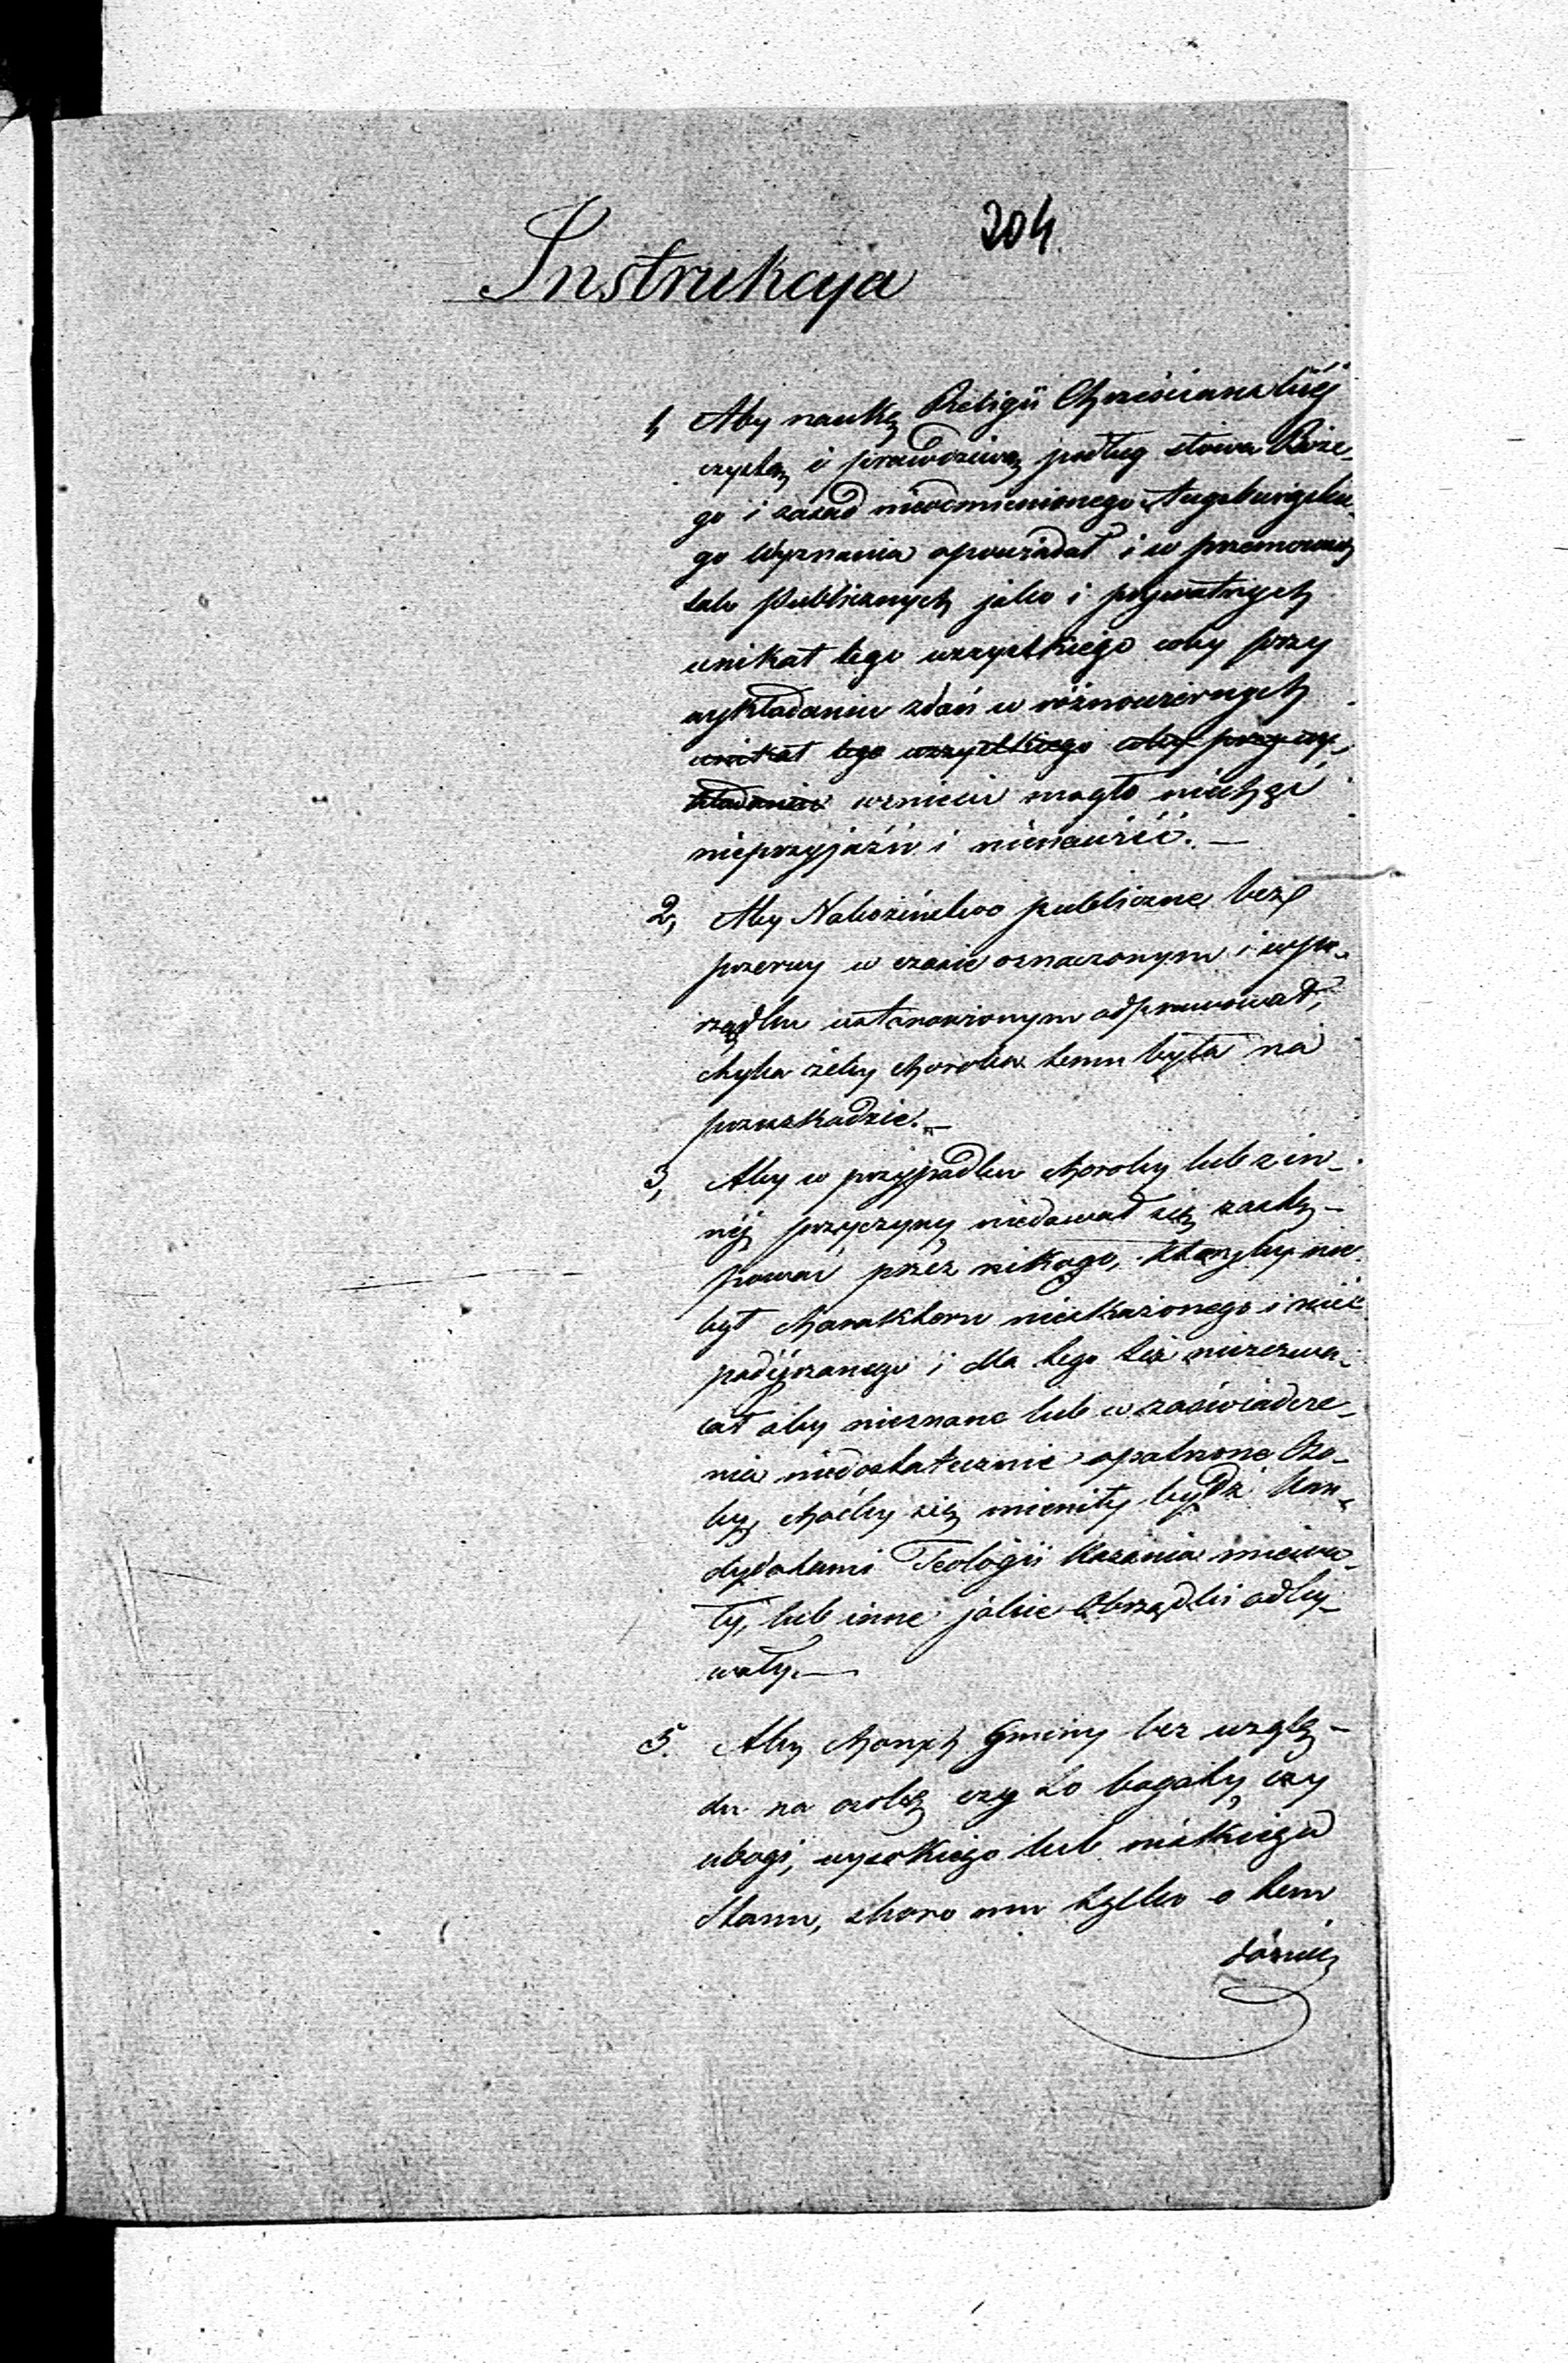 204.
Instrukcya
1, Aby naukę Religii Chrześcianskiéj
czystą i prawdziwą podług słowa Boże-
go i zasad nieodmienionego Augsburgskie-
go Wyznania opowiadał i w przemowach
tak Publicznych jako i prywatnych
unikał tego wszystkiego coby przy
wykładaniu zdań u różnowiernych
unikał tego wszystkiego coby przy wy-
kładaniu wzniecić mogło niechęć
nieprzyjaźń i nienawiść. —
2, Aby Nabożeństwo publiczne bez
przerwy w czasie oznaczonym i w po-
rządku ustanowionym odprawował,
chyba żeby choroba temu była na
przeszkodzie. —
3, Aby w przypadku choroby lub z in-
néj przyczyny niedawał się zastę-
pować przez nikogo, któryby nie
był charakteru nieskażonego i nie
podejrzanego i dla tego też niezezwa-
lał aby nieznane lub w zaświadcze-
nia niedostatecznie opatrzone Oso-
by, choćby się mieniły bydź Kan-
dydatami Teologii Kazania miewa-
ły, lub inne jakie Obrządki odby-
wały. —
5. Aby chorych Gminy bez wzglę-
du na osobę czy to bogaty czy
ubogi, wysokiego lub niskiego
Stanu, skoro mu tylko o tem